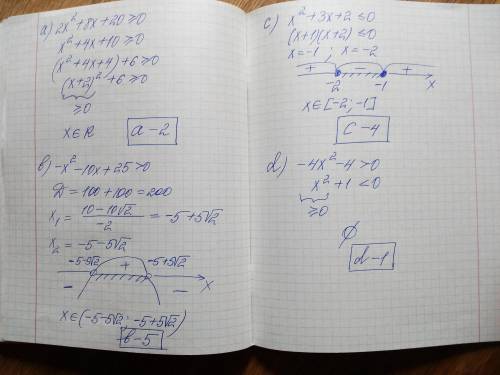 a) 2x² + 8x + 20 ≥ 0
x² + 4x + 10 ≥ 0
(x² + 4x + 4) + 6 ≥ 0
(x + 2)² + 6 ≥ 0
≥ 0
x ∈ R
a - 2
b) -x² - 10x + 25 > 0
D = 100 + 100 = 200
x₁ = (10 - 10√2)/(-2) = -5 + 5√2
x₂ = -5 - 5√2
-5-5√2 + -5+5√2
- - x
x ∈ (-5 - 5√2; -5 + 5√2)
b - 5
c) x² + 3x + 2 ≤ 0
(x + 1)(x + 2) ≤ 0
x = -1 ; x = -2
+ - +
-2 -1 x
x ∈ [-2; -1]
c - 4
d) -4x² - 4 > 0
x² + 1 < 0
≥ 0
∅
d - 1